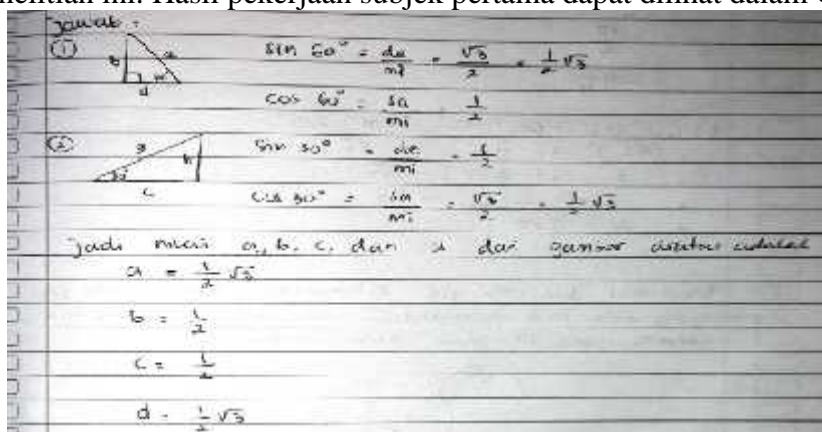 Hasil pekerjaan subjek pertama dapat dilihat dalam
Jawab :
① b a d sin 60° = de/mi = √3/2 = 1/2 √3
cos 60° = sa/mi = 1/2
② c sin 30° = de/mi = 1/2
cos 30° = sa/mi = √3/2 = 1/2 √3
Jadi nilai a, b, c, dan d dari gambar diatas adalah
a = 1/2 √3
b = 1/2
c = 1/2
d = 1/2 √3